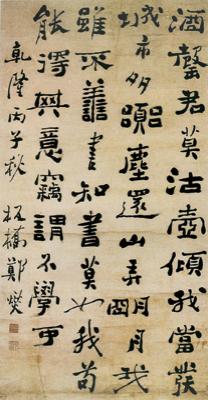 酒罄君莫沽壺傾我當發
城市多囂塵還山弄明月我
雖不善書知書莫如我苟
能擇其意竊謂不學可
乾隆丙子秋板橋鄭燮